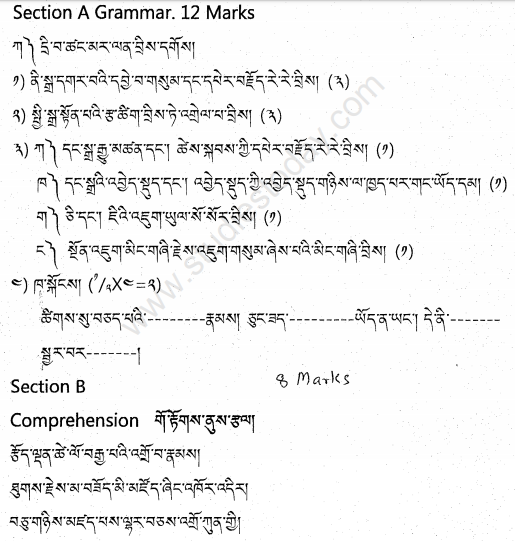 Section A Grammar. 12 Marks
ཀ༽ དྲི་བ་ཚང་མར་ལན་བྲིས་དགོས།
༡) ནི་སྒྲ་དགར་བའི་དབྱེ་བ་གསུམ་དང་དཔེར་བརྗོད་རེ་རེ་བྲིས། (༣)
༢) སྤྱི་སྒྲ་སྟོན་པའི་རྩ་ཚིག་བྲིས་ཏེ་འགྲེལ་པ་བྲིས། (༣)
༣) ཀ༽ དང་སྒྲ་རྒྱུ་མཚན་དང་། ཚེས་སྐབས་ཀྱི་དཔེར་བརྗོད་རེ་རེ་བྲིས། (༡)
ཁ༽ དང་སྒྲའི་འབྱེད་སྡུད་དང་། འབྱེད་སྡུད་ཀྱི་འབྱེད་སྡུད་གཉིས་ལ་ཁྱད་པར་གང་ཡོད་དམ། (༡)
ག༽ ཅི་དང་། ཇིའི་འཇུག་ཡུལ་སོ་སོར་བྲིས། (༡)
ང༽ སྔོན་འཇུག་མིང་གཞི་རྗེས་འཇུག་གསུམ་ཞེས་པའི་མིང་གཞི་བྲིས། (༡)
༤) ཁ་སྐོངས། (༡/༢X༤=༢)
ཚིགས་སུ་བཅད་པའི་---------རྣམས། ཅུང་ཟད་----------ཡོད་ན་ཡང་། དེ་ནི་-------
སྦྱར་བར་-------།
Section B
8 Marks
Comprehension གོ་རྟོགས་ནུས་རྩལ།
རྩོད་ལྡན་ཚེ་ལོ་བརྒྱ་པའི་འགྲོ་བ་རྣམས།
ཐུགས་རྗེས་མ་བཟོད་མི་མཛོད་ཞིང་འཁོར་འདིར།
བཅུ་གཉིས་མཛད་པས་ལྷར་བཅས་འགྲོ་ཀུན་གྱི།
www.studiestoday.com